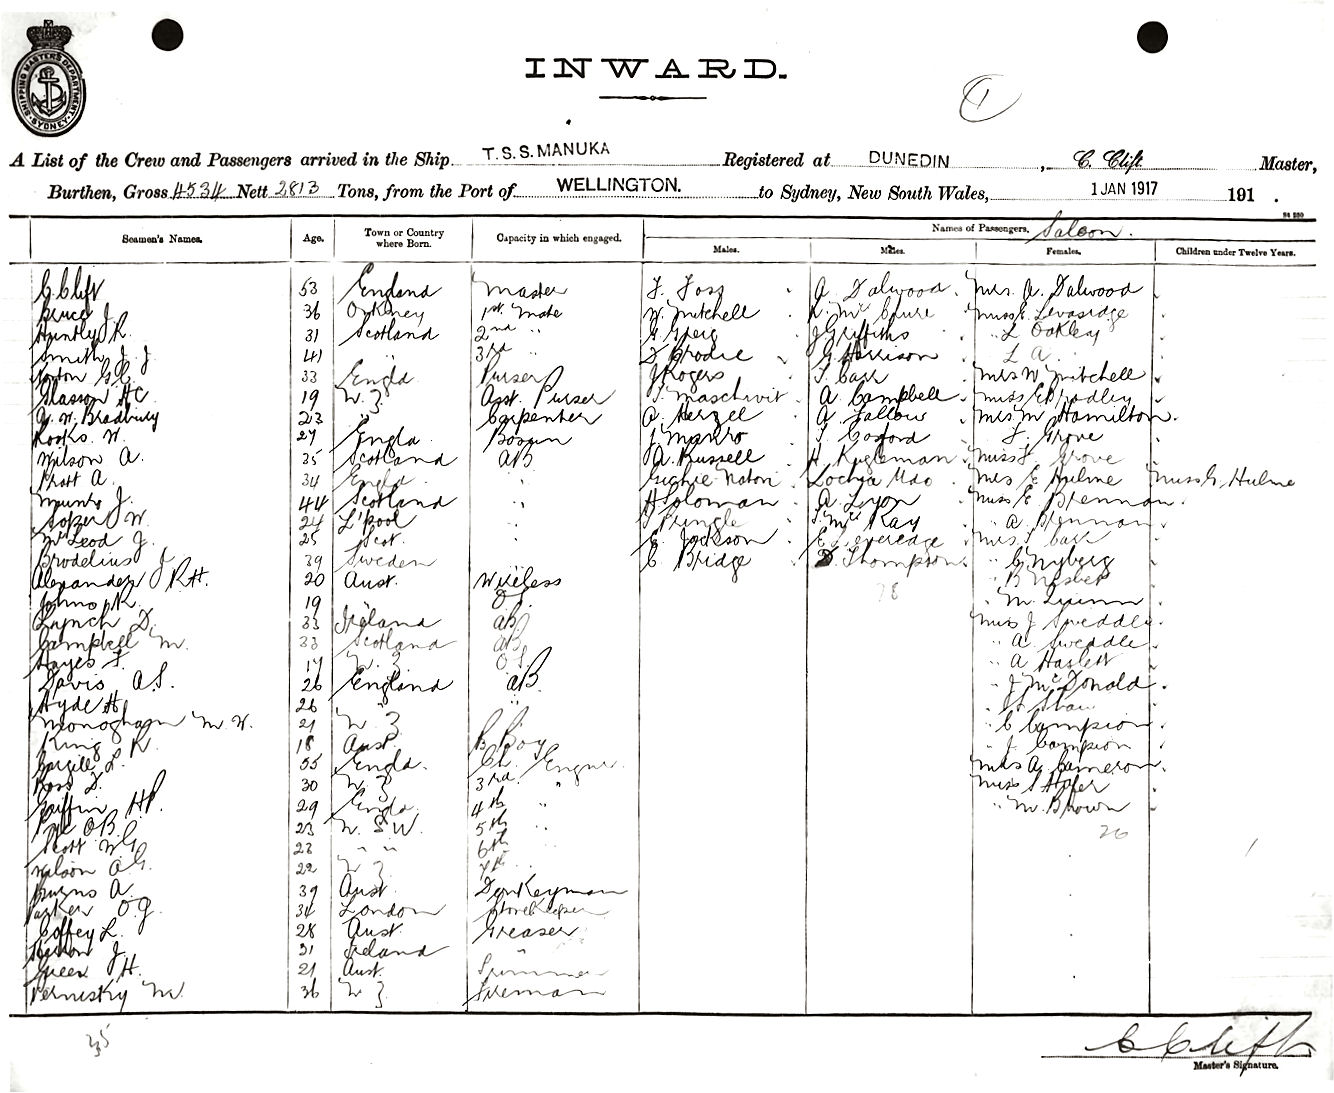 SHIPPING MASTERS DEPARTMENT. SYDNEY.
INWARD.
1
A List of the Crew and Passengers arrived in the Ship T.S.S. MANUKA Registered at DUNEDIN, C. Clift Master,
Burthen, Gross 4534 Nett 2813 Tons, from the Port of WELLINGTON. to Sydney, New South Wales, 1 JAN 1917 191 .
Seamen's Names. Age. Town or Country where Born. Capacity in which engaged. Names of Passengers. Saloon.
Males. Males. Females. Children under Twelve Years.
C Clift 53 England Master F. Foss A. Dalwood Mrs. A. Dalwood
Bruce J 36 Orkney 1st Mate W. Mitchell Miss E Levasidge
Huntly R. 31 Scotland 2nd " G Greig J Griffiths " L Oakley
Smith J. J 41 " 3rd " D Brodie G Harrison " L A.
Norton G.C. 33 Engld Purser J Rogers T Carr Mrs W Mitchell
Glasson H C 19 N. Z Asst. Purser A. Campbell Miss E Bradley
A. W. Bradbury 23 " Carpenter A. Herzel A Fallow Mrs. M Hamilton
Rooks. W. 27 Engld. Bosun J Munro T Coxford " F. Grove
Wilson A. 35 Scotland AB A. Russell H Kugleman Miss F Grove
Pratt A. 34 Engld. " Mrs E Hulme Miss G. Hulme
Munro J. 44 Scotland " H Soloman A. Lyon Miss E Brennan
Soper W. 24 L'pool " J Pringle J. Mc Kay " A Brennan
McLeod J. 25 Scot. " E. Jackson E Levereage Mrs. T Carr
Brodelius J 39 Sweden " C Bridge D. Thompson " C Nyberg
Alexander R.H. 20 Aust. Wireless " B Nesbet
Johns R. 19 " O.S. " M. Quinn
28
Lynch D. 33 Ireland AB. Miss J Sweddle
Campbell M. 33 Scotland AB. " A Sweddle
Hayes F. 17 N. Z O.S. " A Haslett
Davis A.S. 26 England AB " J McDonald
Hyde H 26 " "
Monogham M. W. 21 N. Z " C Campion
King R. 18 Aust B. Boy " J Campion
Cargill L. 55 Engld. Ch. Engnr. Mrs A Cameron
Ross D. 30 N. Z 3rd " Miss S Hofer
Griffin HP. 29 Engd. 4th " " M. Brown
23 N. S W. 5th "
26
Scott W G 23 " " 6th "
Nelson A.G. 22 N. Z 7th "
Burns A. 39 Aust. Donkeyman
Parker O g. 34 London Storekeeper
Coffey L. 28 Aust. Greaser
31 Ireland "
Green H. 21 Aust.
36 N Z Fireman
35
C Clift
Master's Signature.